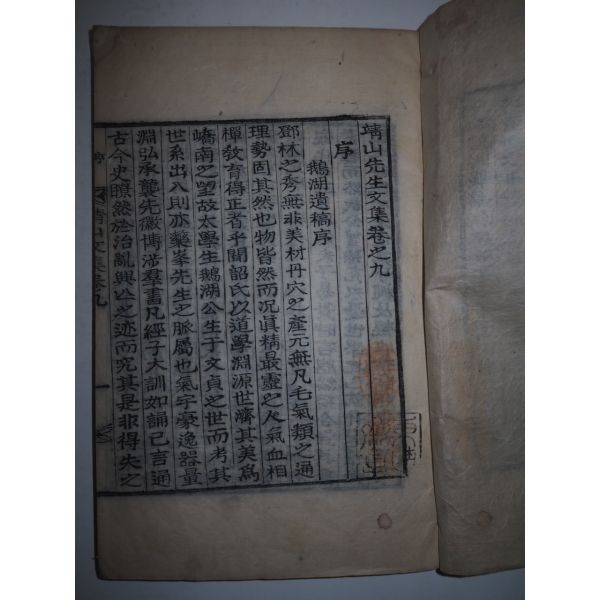 靖山先生文集卷之九
序
鵝湖遺稿序
鄧林之秀無非美材丹穴之產元無凡毛氣類之通
理勢固其然也物皆然而况眞精最靈之人氣血相
禪敎育得正者乎關韶氏以道學淵源世濟其美爲
嶠南之望故太學生鵝湖公生于文貞之世而考其
世系出入則亦藥峯先生之脈屬也氣宇豪逸器量
淵弘承襲先徽博涉羣書凡經子大訓如誦己言通
古今史瞭然於治亂興亡之迹而究其是非得失之
靖山文集卷九
一